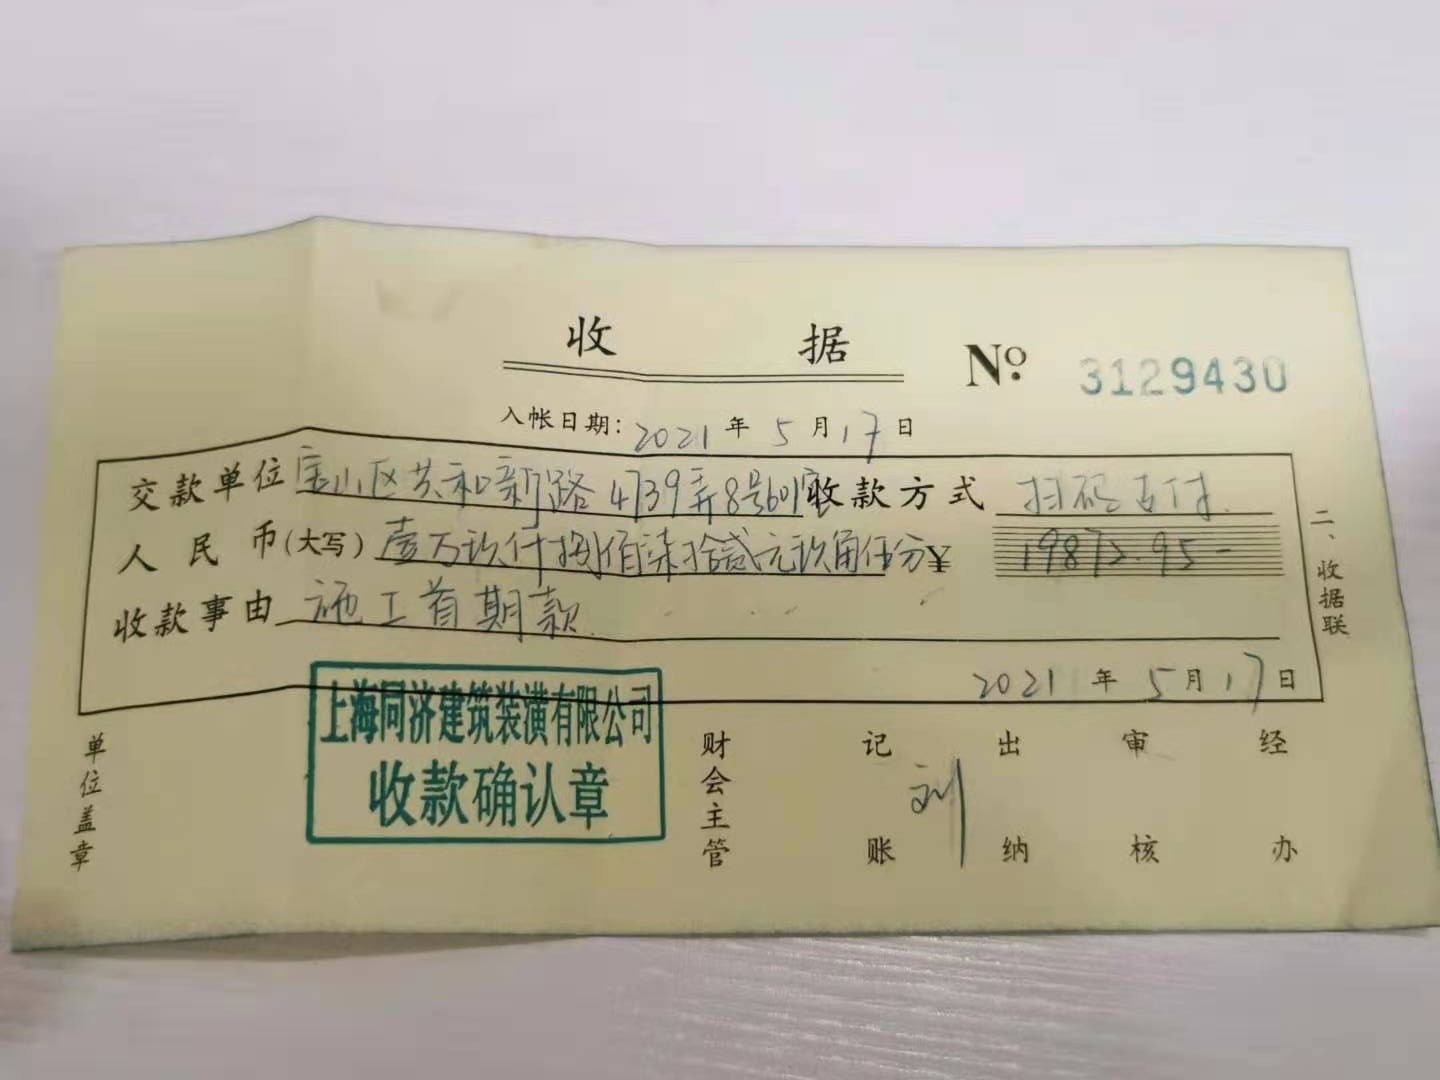 收据
No. 3129430
入帐日期: 2021年5月17日
交款单位 宝山区共和新路4739弄8号601室 收款方式 扫码支付
人民币(大写) 壹万玖仟捌佰柒拾贰元玖角伍分 ¥ 19872.95-
收款事由 施工首期款
2021年5月17日
二、收据联
上海同济建筑装潢有限公司
收款确认章
单位盖章 财会主管 记账 刘 出纳 审核 经办